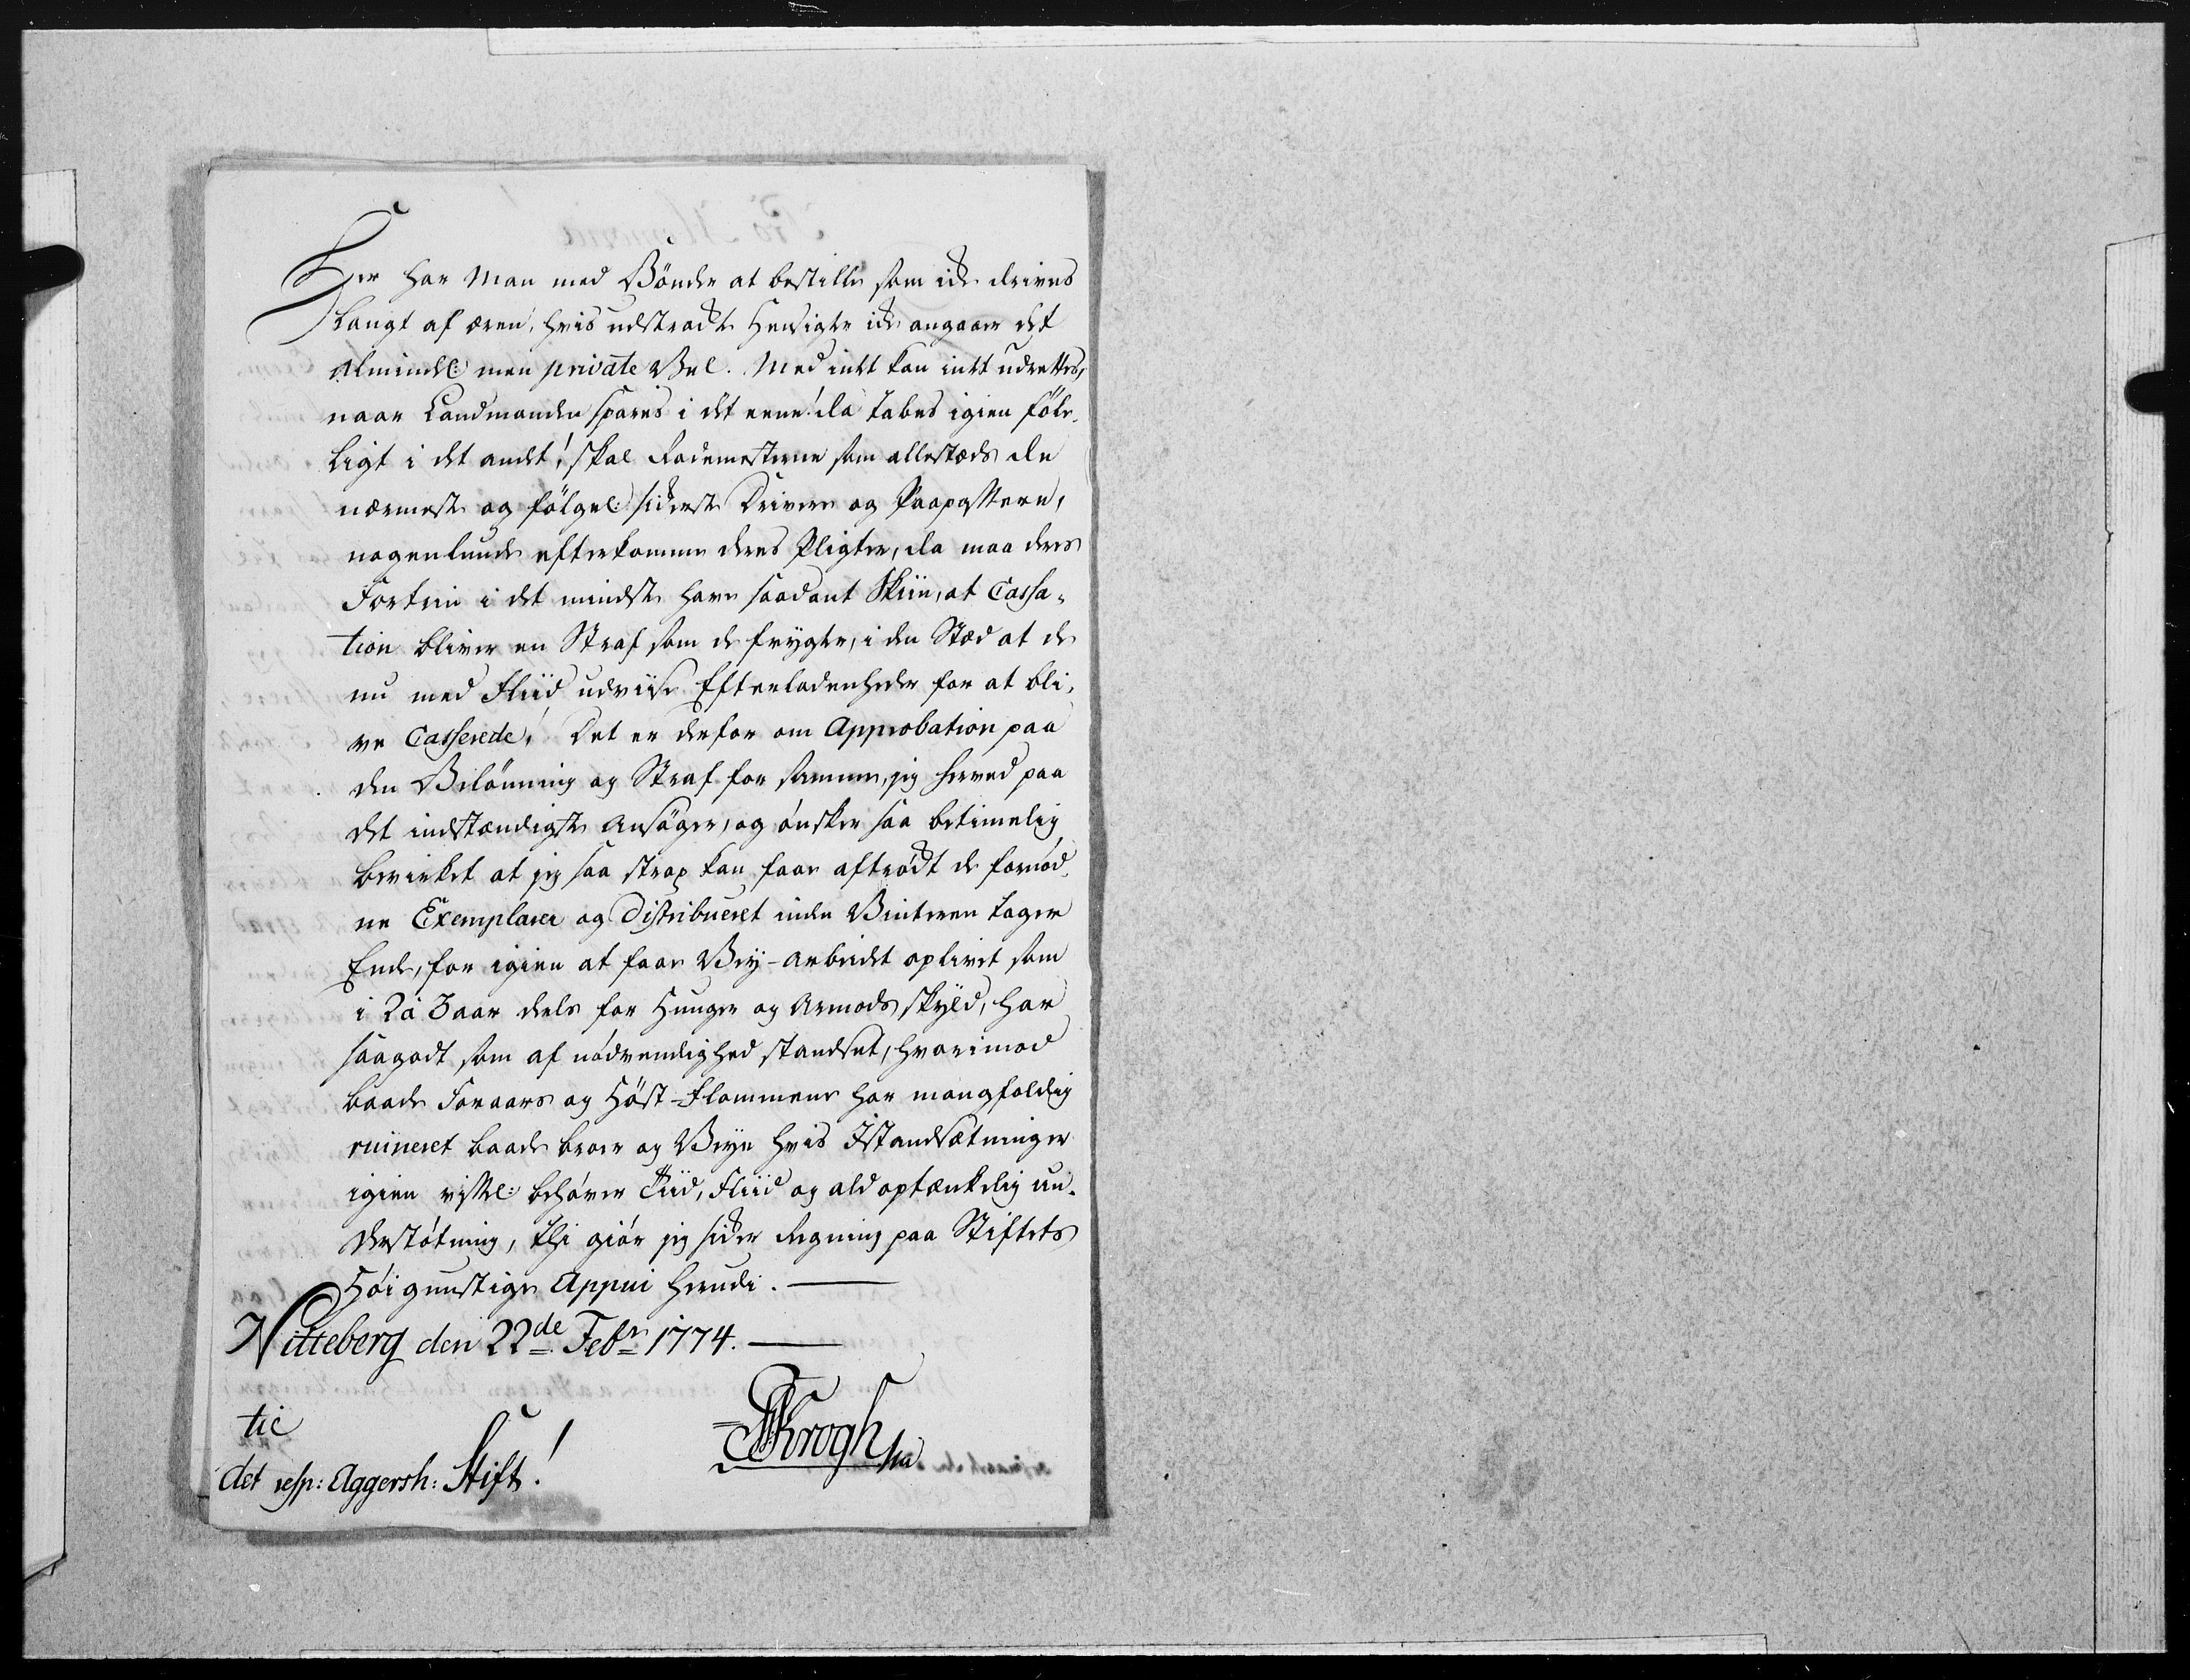 Her har Man med Bönder at bestille som icke drives
langt af æren, hvis udstrackte Hensigter icke angaaer det
Almindel: men private Vel. Med intet kan intet udrettes,
naar Landmanden spares i det eene! da tabes igien föle-
ligt i det andet! skal Rodemesterne som allestæds de
nærmeste og fölgel: sickerste Drivere og Paapassere,
nogenlunde efterkomme deres Pligter, da maa deres
Fortrin i det mindste have saadant Skiin, at Cassa-
tion bliver en Straf som de frygter, i den Stæd at de
nu med Fliid udviise Efterladenheder for at bli-
ve Casserede! Det er derfor om Approbation paa
den Belönning og Straf for samme, jeg herved paa
det indstændigste Ansöger, og ónsker saa betimelig
bevirket at jeg saa strax kan faae aftrödt de fornöd-
ne Exemplarer og Distribueret inden Vinteren tager
Ende, for igien at faae Vey-Arbeidet oplivet som
i 2 à 3 aar deels for Hunger og Armods skyld, har
saagodt som af nödvendighed standset, hvorimod
baade Foraars og Höst-Flommene har mangfoldig
ruineret baade broer og Veye hvis Istandsætninger
igien visstel: behöver Tiid, Fliid og ald optænkelig un-
derstötning, thi giör jeg sicker Regning paa Stiftets
Höigunstige Appui herudi.
Nitteberg den 22de Febr 1774.
GFKrogh
til
det resp: Aggersh: Stift!